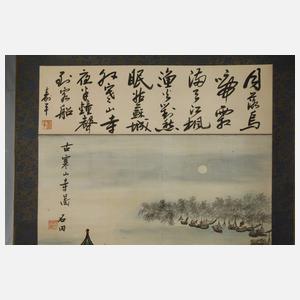 月落烏
啼霜
滿天江楓
漁火對愁
眠姑蘇城
外寒山寺
夜半鐘聲
到客船
古寒山寺圖
石田